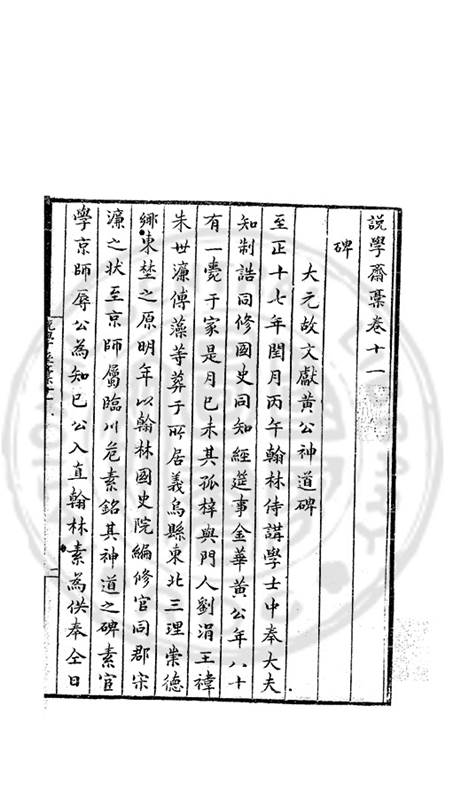 說學齋藁卷十一
碑
大元故文獻黃公神道碑
至正十七年閏月丙午翰林侍講學士中奉大夫
知制誥同修國史同知經筵事金華黃公年八十
有一薨于家是月己未其孤梓與門人劉涓王禕
朱世濂傅藻等葬于所居義烏縣東北三理崇德
鄉東埜之原明年以翰林國史院編修官同郡宋
濂之狀至京師屬臨川危素銘其神道之碑素官
學京師辱公為知已公入直翰林素為供奉仝日